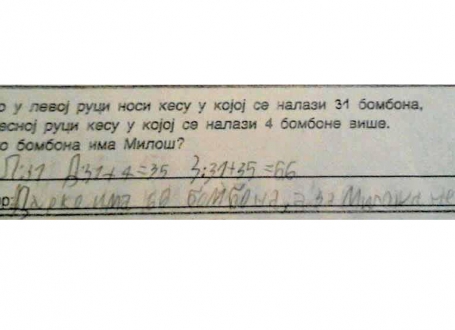 о у левој руци носи кесу у којој се налази 31 бомбона,
есној руци кесу у којој се налази 4 бомбоне више.
о бомбона има Милош?
Л:31 Д31+4=35 З:31+35=66
ор: Дарко има 66 бомбона, а за Милоша не